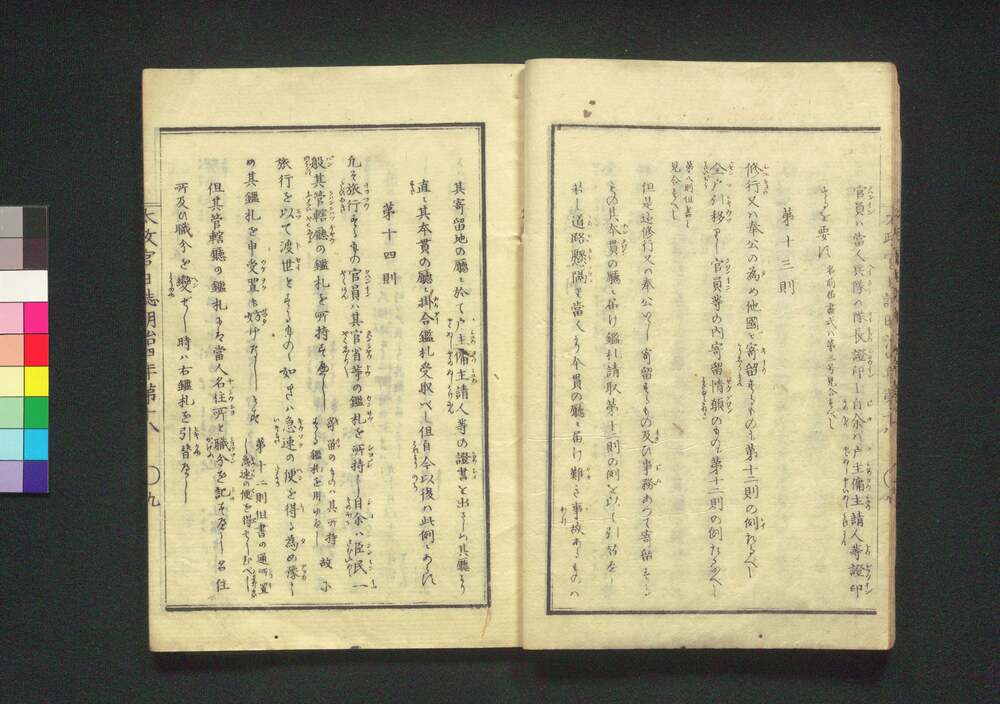 官員ハ當人兵隊ハ隊長證印シ自余ハ戸主傭主請人等證印
スルヲ要ス 名前書書式ハ第三号見合スヘシ
第十三則
修行又ハ奉公ノ為メ他國ニ寄留スルモノモ第十二則ノ例タルヘシ
全戸引移リシ官員等ノ内寄留情願ノモノモ第十二則ノ例タルヘシ
第八則但書ト
見合スヘシ
但是迄修行又ハ奉公ニテ寄留スルモノ及ヒ事務アツテ寄留セシ
モノ其本貫ノ廳ニ届ケ鑑札請取第十二則ノ例ヲ以テ引合ナシ
若シ道路懸隔シ當人ヨリ本貫ノ廳ニ届ケ難キ事故アルモノハ
其寄留地ノ廳ニ於テ戸主傭主請人等ノ證書ヲ出サシメ其廳ヨリ
直ニ其本貫ノ廳ニ掛合鑑札受取ベシ但自今以後ハ此例ニアラス
第十四則
凡ソ旅行スルモノ官員ハ其官省等ノ鑑札ヲ所持シ自余ハ臣民一
般其管轄廳ノ鑑札ヲ所持スヘシ 寄留ノモノハ其所持スル鑑札ヲ用ユヘシ 故ニ
旅行ヲ以テ渡世トスルモノヽ如キハ急速ノ便ヲ得ル為メ豫シ
メ其鑑札ヲ申受置モ妨ケナシ 第十二則但書ノ通所置シ急速ノ便ヲ得セシムベシ
但其管轄廳ノ鑑札ニハ當人名住所ト職分ヲ記スヘシ名住
所及ヒ職分ヲ變セシ時ハ右鑑札ヲ引替ヘシ
太政官日誌明治四年第十八 〇九